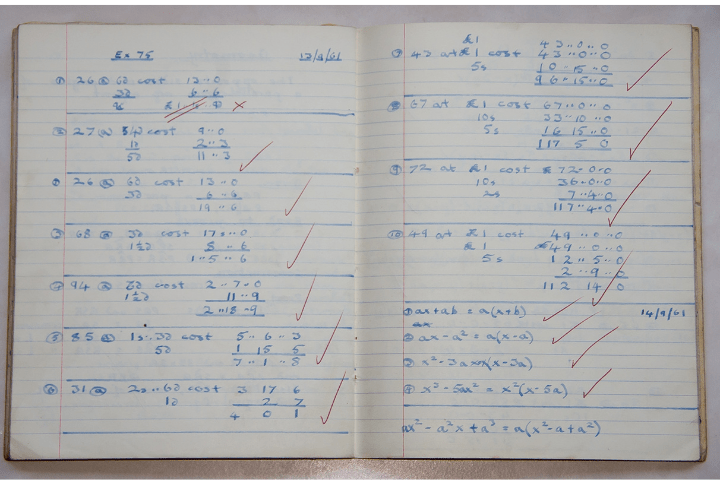 Ex 75
12/9/61
① 26 @ 6d cost 13..0
3d 6..6
27 @ cost 9..0
1d 2..3
5d 11..3
26 @ 6d cost 13..0
3d 6..6
19..6
③ 68 @ 3d cost 17s..0
1½d 8..6
1..5..6
94 @ 6d cost 2..7..0
1½d 11..9
2..18..9
⑤ 85 @ 1s..3d cost 5..6..3
5d 1 15 5
7..1..8
⑥ 31 @ 2s..6d cost 3 17 6
1d 2 7
4 0 1
£1 43..0..0
⑦ 43 at £1 cost 43..0..0
5s 10..15..0
96..15..0
67 at £1 cost 67..0..0
10s 33..10..0
5s 16 15..0
117 5 0
⑨ 72 at £1 cost 72..0..0
10s 36..0..0
2s 7..4..0
117..4..0
⑩ 49 at £1 cost 49..0..0
£1 49..0..0
5s 12..5..0
2..9..0
112 14 0
① ax+ab = a(x+b) 14/9/61
② ax-a² = a(x-a)
③ x²-3ax x(x-3a)
④ x³-5ax² = x²(x-5a)
ax²-a²x+a³ = a(x²-a+a²)